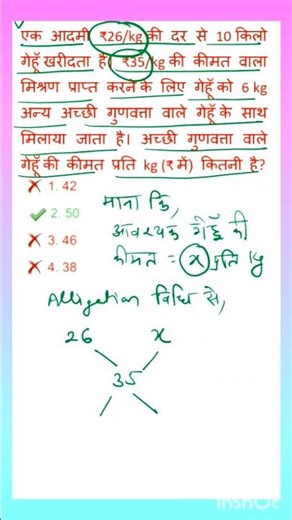 एक आदमी ₹26/kg की दर से 10 किलो
गेहूँ खरीदता है। ₹35/kg की कीमत वाला
मिश्रण प्राप्त करने के लिए गेहूँ को 6 kg
अन्य अच्छी गुणवत्ता वाले गेहूँ के साथ
मिलाया जाता है। अच्छी गुणवत्ता वाले
गेहूँ की कीमत प्रति kg (₹ में) कितनी है?
1. 42
2. 50
3. 46
4. 38
माना कि,
आवश्यक गेहूँ की
कीमत = x प्रति kg
Alligation विधि से,
26 x
35
InShot